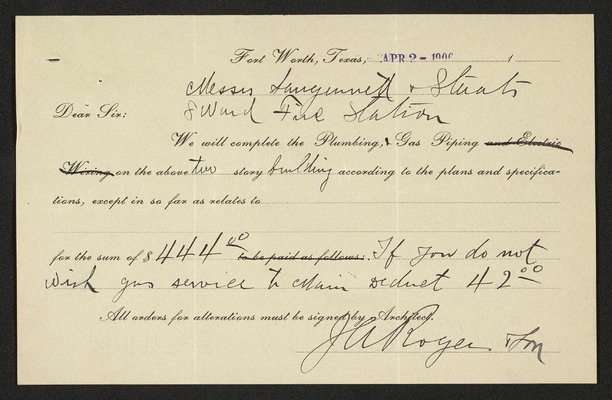 Fort Worth, Texas, APR 2 - 190 1
Messrs Sanguinett & Staats
Dear Sir: 8 Ward Fire Station
We will complete the Plumbing, & Gas Piping and Electric
Wiring on the above two story building according to the plans and specifica-
tions, except in so far as relates to
for the sum of $ 444 00 to be paid as follows: If you do not
wish gas service to Main deduct 42 00
All orders for alterations must be signed by Architect.
J A Royer & Son